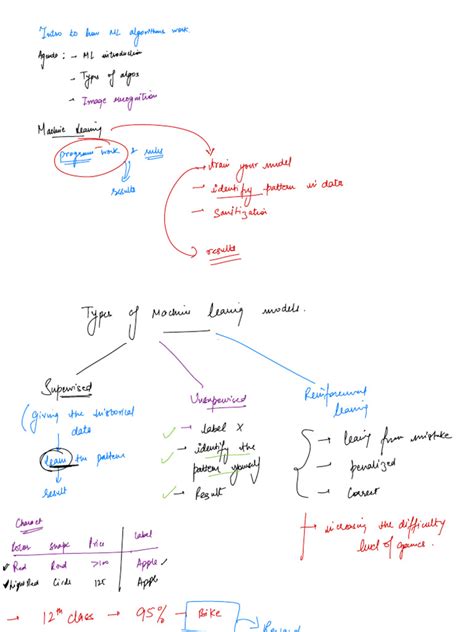 Intro to how ML algorithms work
Agenda : → ML introduction
→ Types of algos
→ Image recognition
Machine learning
program work & rules
results
→ train your model
→ identify pattern in data
→ Sanitization
→ results
Types of Machine learing models.
Supervised
(giving the historical
data
learn the pattern
result
Unsupervised
→ Label X
→ identify the
pattern yourself
→ Result
Reinforcement
learing
→ learing from mistake
→ penalized
→ correct
→ increasing the difficulty
level of game.
Charact
Color Shape Price Label
Red Rond >100 Apple
Light Red Circle 125 Apple
→ 12th class → 95% → Bike
Reward